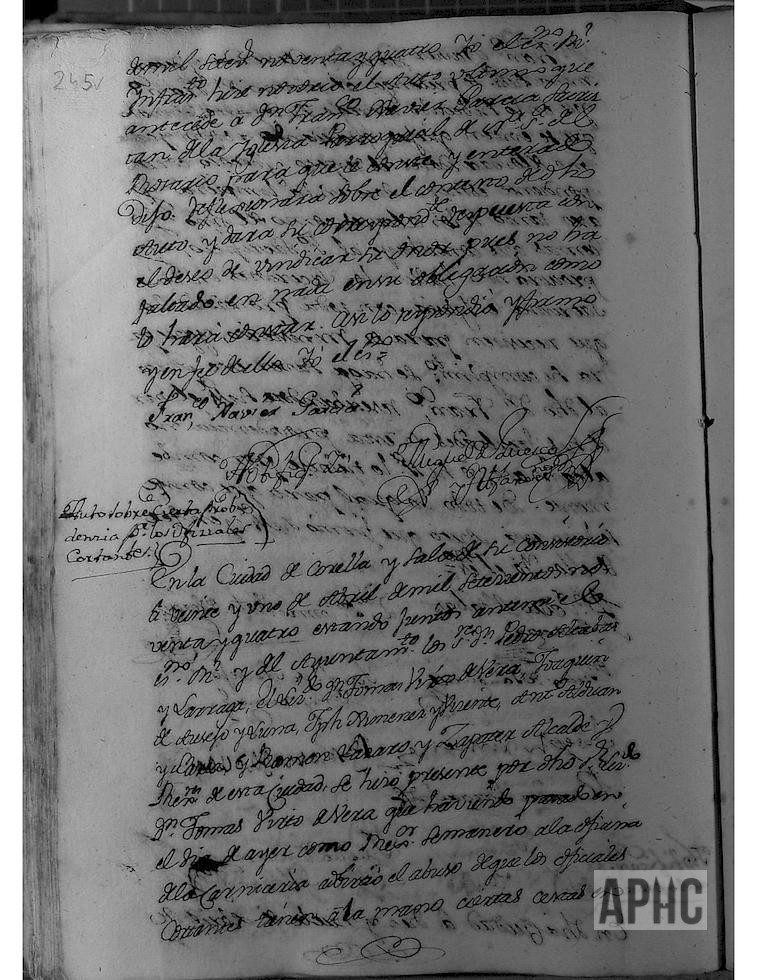 245v
de mil setecᵒˢ noventa y quatro Yo el esⁿᵒ Rˡ
Infraᵗᵒ hice notorio el Auto ultimo que
antecede, a Dⁿ Franᶜᵒ Xavier Garcia Sacris
tan de la Yglesia Parroquial de Nᵃ Sᵃ del
Rosario para que le conste y enterado
Dijo: Reflexionará sobre el contenido de dho
Auto, y dara su correspondᵗᵉ respuesta con
el deseo de vindicar su onor pues no ha
faltado en nada en su obligación como
lo hará constar. Asi lo respondio y firmo
y en fe de ello Yo el esⁿᵒ
Franᶜᵒ Xavier Garcia
Notifiqᵉ
Miguel de
Auto sobre cierta probi
dencia pᵃ los Oficiales
Cortantes.
En la Ciudad de Corella y Sala de su Consistorio
a veinte y uno de Abril de mil setecientos no
venta y quatro estando juntos ante mi el
esⁿᵒ Rˡ y del Ayuntamᵗᵒ los Sʳᵉˢ Dⁿ Pedro
y Larraga, el Licᵈᵒ Dⁿ Tomas Virto de Vera, Joaquin
de Aseso y Luna, Jph Ximenez y Puente, Antᵒ
y y Ramon Navarro, y Zapater Alcalde y
Rexʳᵉˢ de esta Ciudad se hizo presente por dho Sʳ Licᵈᵒ
Dⁿ Tomas Virto de Vera que haviendo pasado en
el dia de ayer como Rexᵒʳ semanero a la oficina
de la Carniceria advirtio el abuso de que los oficiales
Cortantes tienen a la mano ciertas cestas
APHC